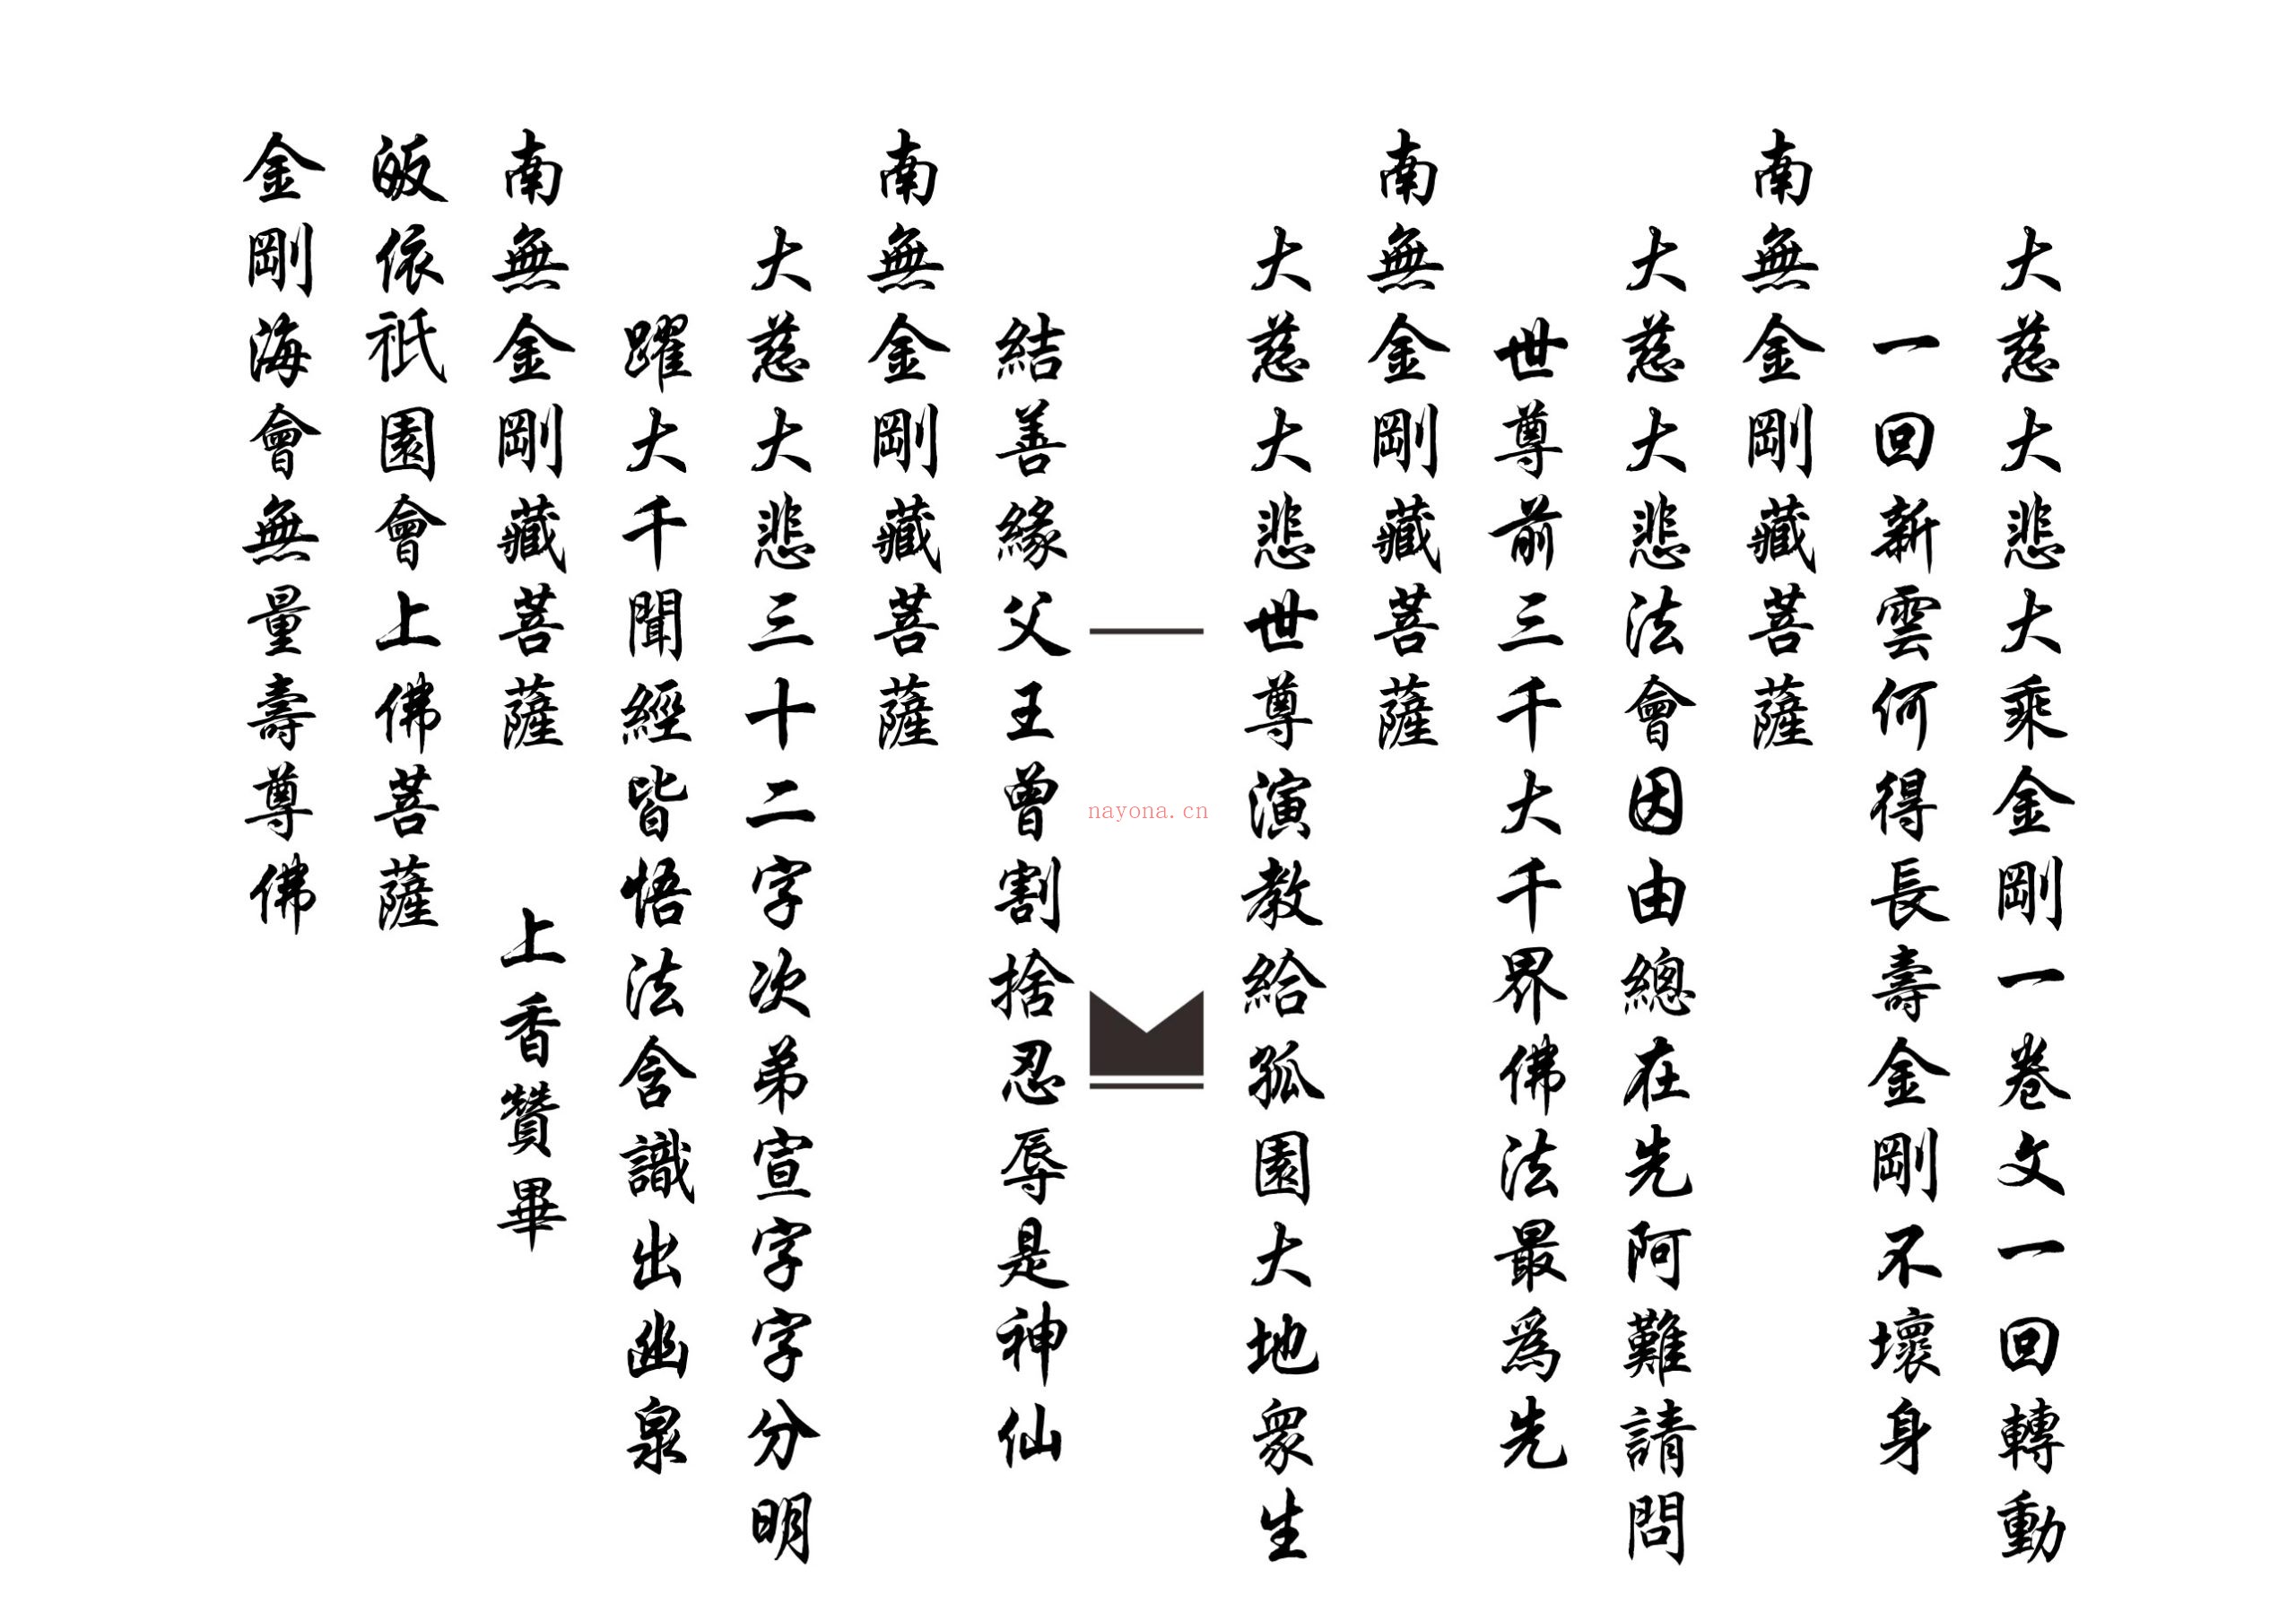 大慈大悲大乘金剛一卷文一回轉動
一回新雲何得長壽金剛不壞身
南無金剛藏菩薩
大慈大悲法會因由總在先阿難請問
世尊前三千大千界佛法最為先
南無金剛藏菩薩
大慈大悲世尊演教給孤園大地衆生
結善緣父王曾割捨忍辱是神仙
南無金剛藏菩薩
大慈大悲三十二字次弟宣字字分明
躍大千聞經皆悟法含識出幽泉
南無金剛藏菩薩 上香贊畢
皈依祇園會上佛菩薩
金剛海會無量壽尊佛
一
nayona.cn